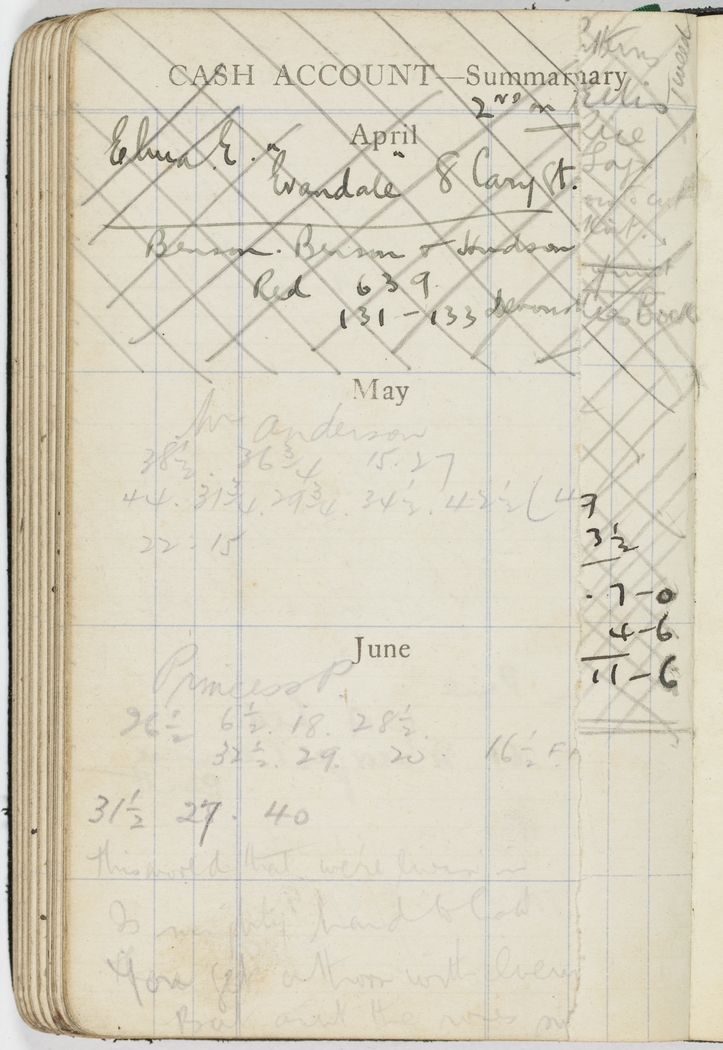 CASH ACCOUNT—Summarnary
2nd on
April
Elma E. "Evandale" 8 Cary St.
Benson. Benson & Hudson
Red 639
131-133
May
Mr Anderson
38½. 36¾ 15.27
44. 31¾. 29¾. 34½. 42½ (4
22 : 15
June
Princess P
26½ 6½. 18. 28½.
32½. 29. 20. 16½
31½ 27. 40
This world that we're livin in
Is mighty hard to
You get a thorn with every
But
Tweed
Rice
Soap
Book
7
3½
.7-0
4-6
11-6